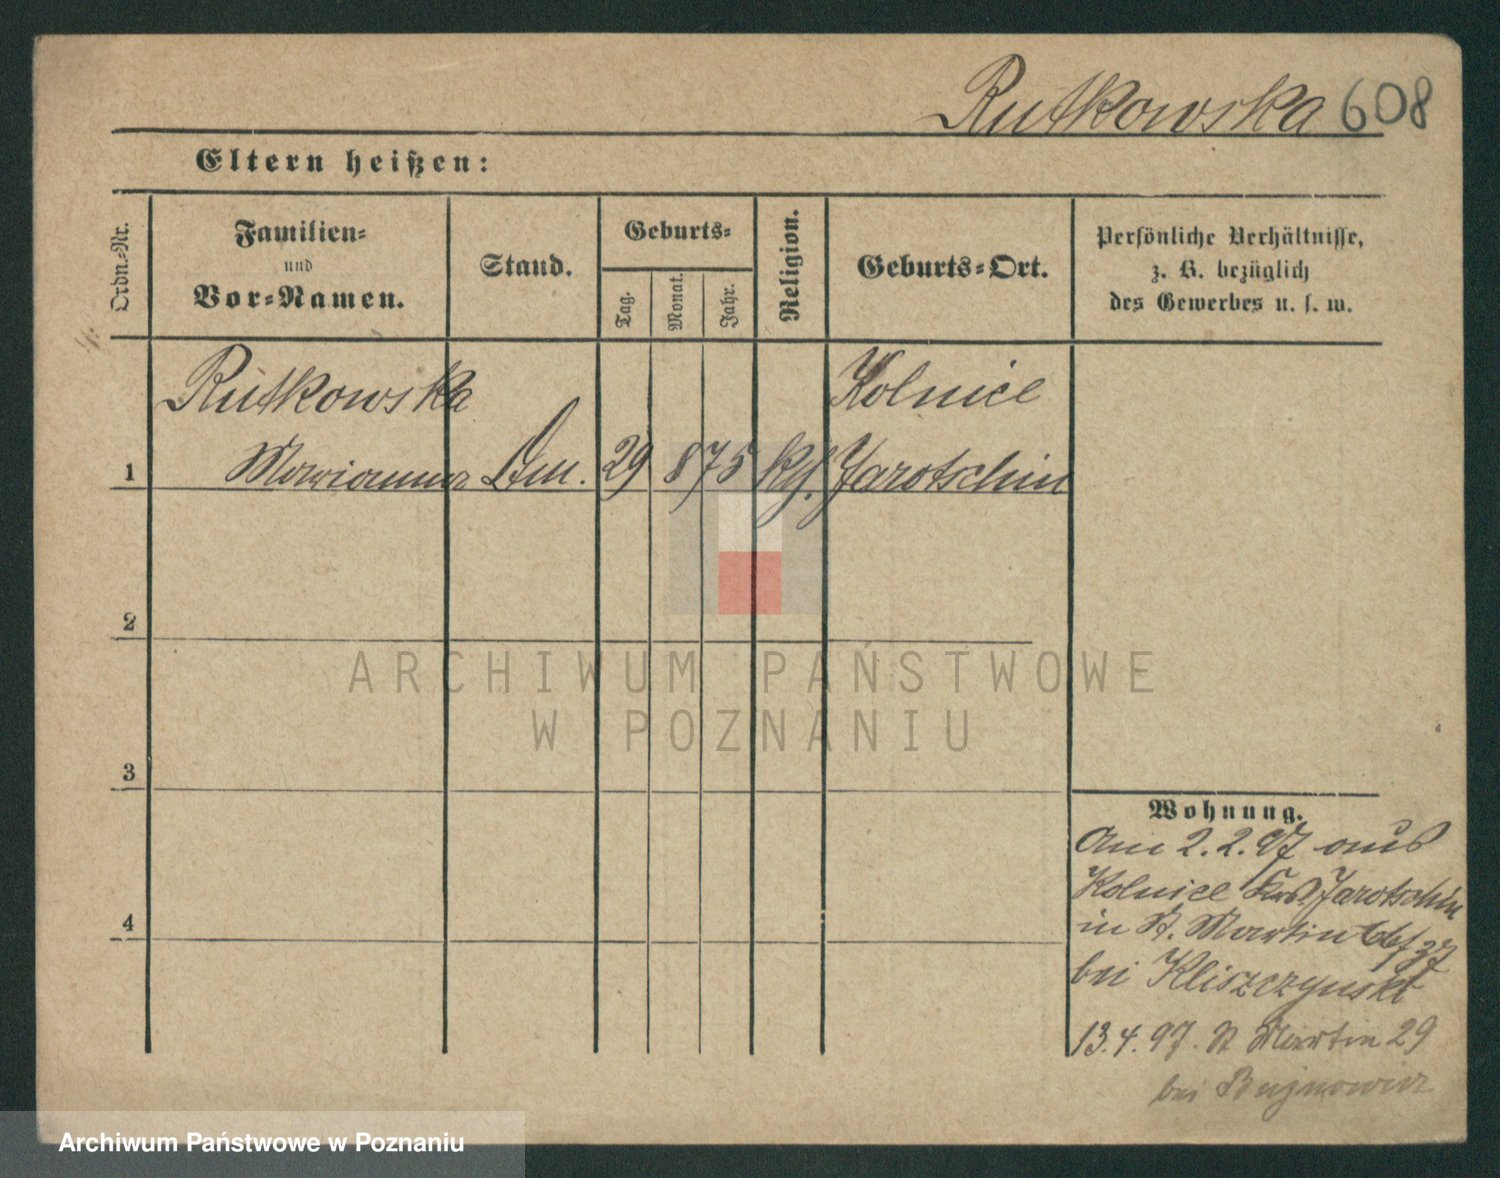 Rutkowska 608
Eltern heißen:
Ordn.-Nr.
Familien-
und
Vor-Namen.
Stand.
Geburts-
Tag.
Monat.
Jahr.
Religion.
Geburts-Ort.
Persönliche Verhältnisse,
z. B. bezüglich
des Gewerbes u. s. w.
Rutkowska Kolnice
1 Marianna 29 8 75 Jarotschin
2
3
4
ARCHIWUM PAŃSTWOWE
W POZNANIU
Wohnung.
Am 2.2.97 aus
Kolnice Jarotschin
in St. Martin 37
bei Kliszczynski
13.4.97. St Martin 29
bei
Archiwum Państwowe w Poznaniu